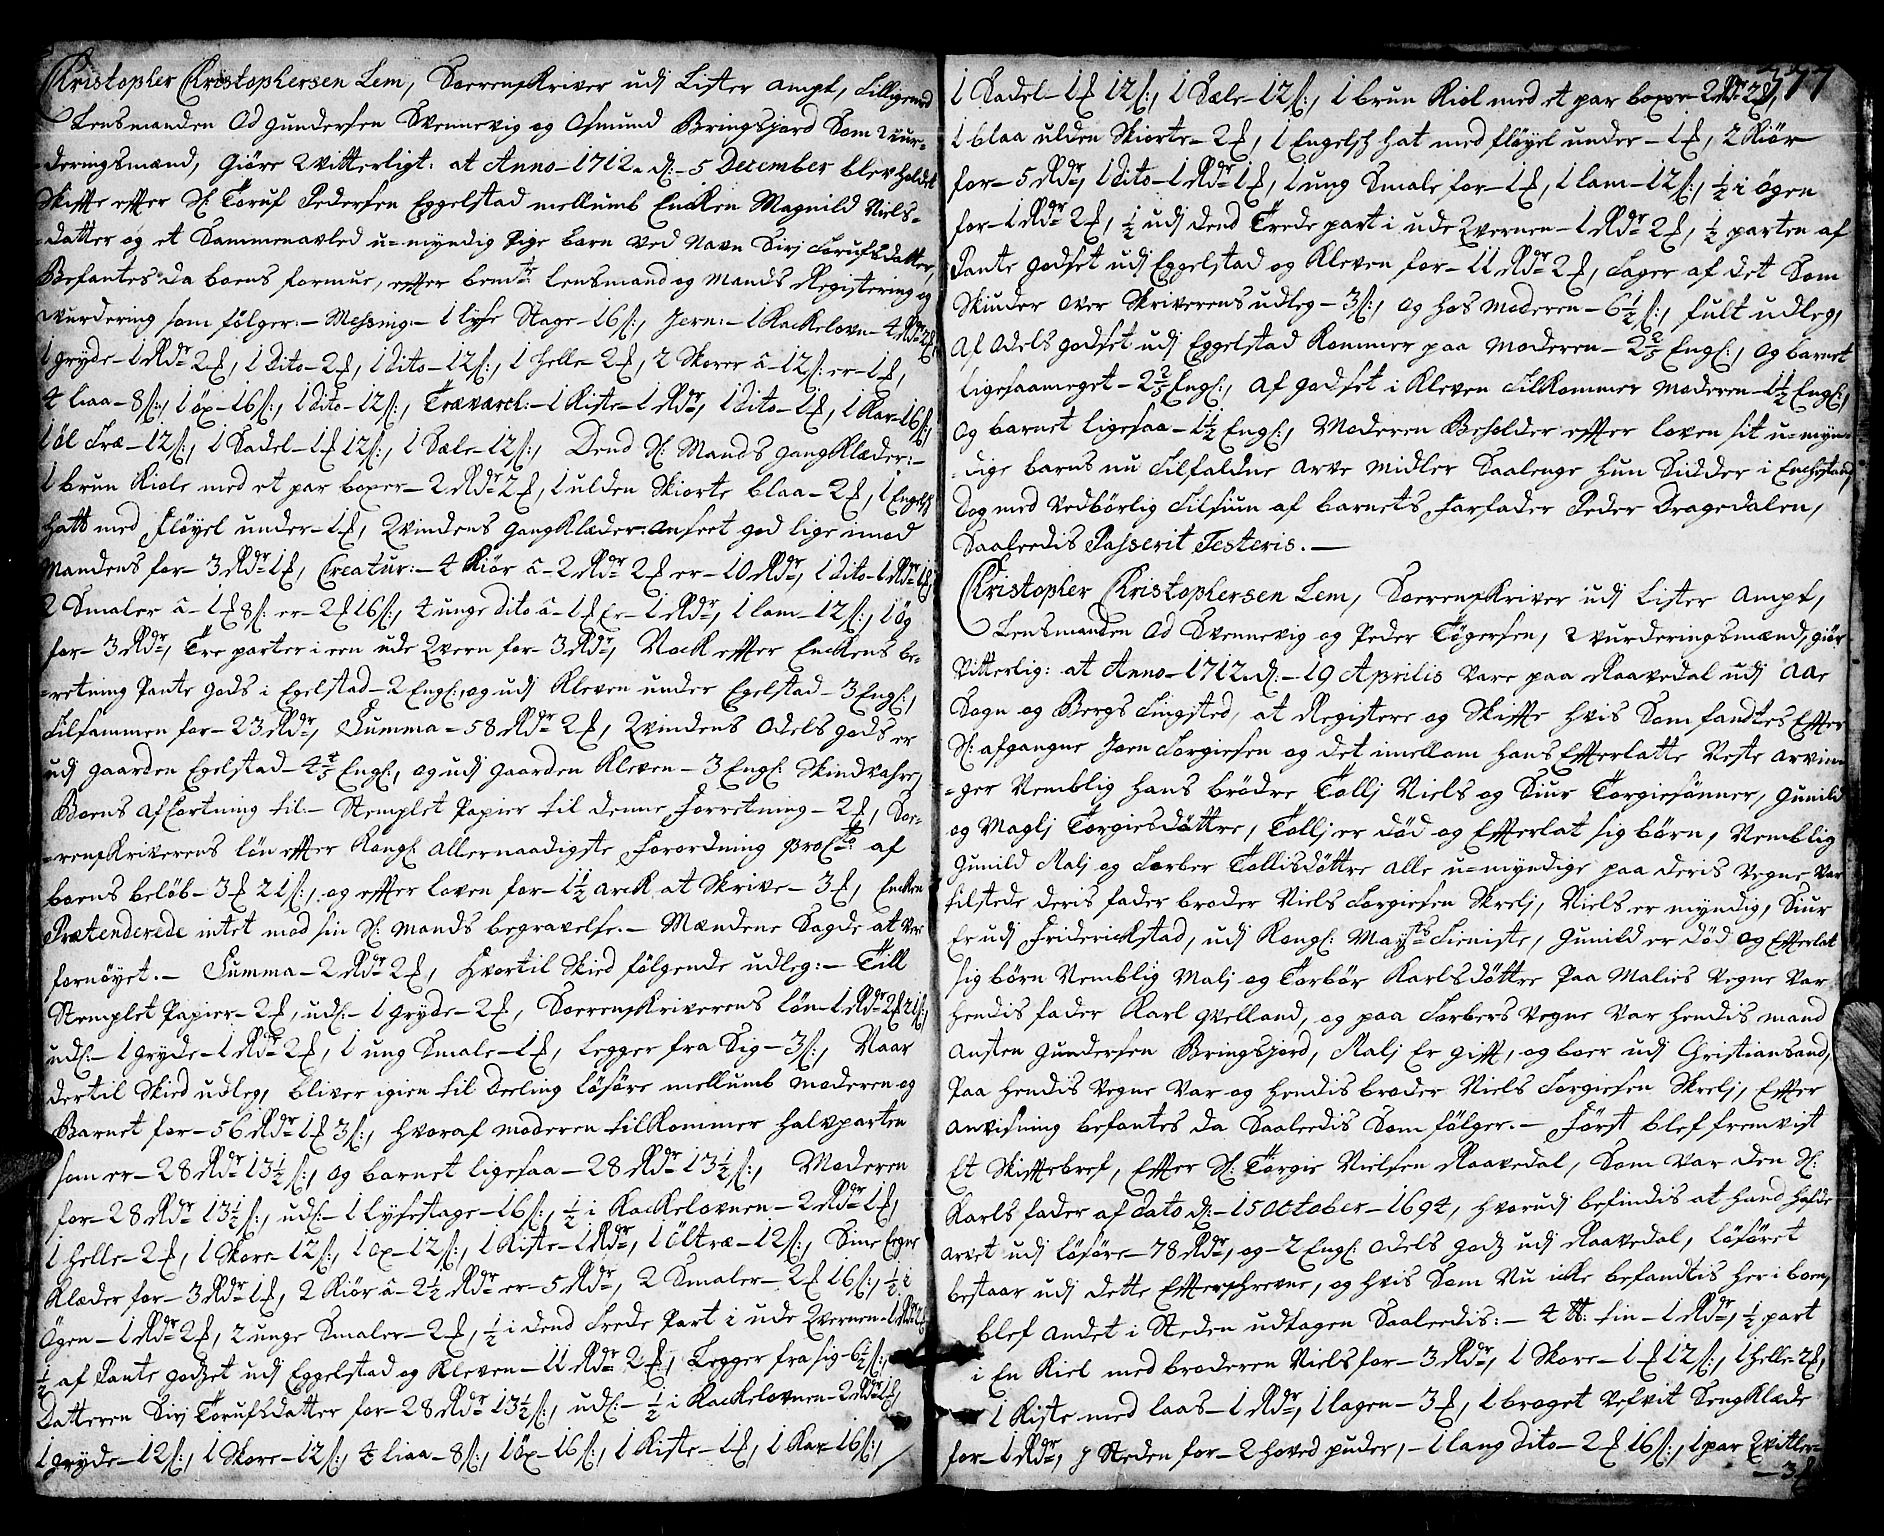 Christopher Christophersen Lem, Sorenskriver udj Lister Ampt, Tilligemed
Lensmanden Od Gundersen Svennevig og Osmund Bringsjord Som 2 vur-
-deringsmænd, Giøre Witterligt: at Anno-1712. d:-5 December blev holdet
Skiffte effter S: Toruf Pedersen Eggelstad mellumb Encken Magnild Niels-
-datter og et Sammenavled u=myndig Pige barn ved Navn Sirj Torufsdatter,
Befantes da boens formue, effter bemte Lensmand og Mænds Registering og
wurdering som følger:- Messing:- 1 lyse Stage-16 s:, Jern:- 1 Kackelovn-4 Rdr 2 f
1 gryde-1 Rdr 2 f, 1 dito-2 f, 1 dito-12 s:, 1 Helle-2 f, 2 Skorer a-12 s: er-1 f,
4 liaa-8 s:, 1 øx-16 s:, 1 dito-12 s:, Trævarel:- 1 Kiste-1 Rdr, 1 dito-1 f, 1 Kar-16 s:,
1 øl Træ-12 s:, 1 Sadel-1 f 12 s:, 1 Sæle-12 s:, Dend S: Mands gangKlæder:-
1 brun Kiole med et par boxer-2 Rdr 2 f, 1 ulden Skiorte blaa-2 f, 1 Engelsh
hatt med fløyel under-1 f, Qvindens gangKlæder anseet god lige imod
Mandens for-3 Rdr 1 f, Creatur:- 4 Kiør a-2 Rdr 2 f er-10 Rdr, 1 dito-1 Rdr 1 f,
2 Smaler a-1 f 8 s: er-2 f 16 s:, 4 unge dito a-1 f Er-1 Rdr, 1 lam-12 s:, 1 øg
for-3 Rdr, Tre parter i een ude Qvern for-3 Rdr, Nock effter Enckens be-
-retning Pante gods i Egelstad-2 Engl:, og udj Kleven under Egelstad-3 Engl:,
tilsammen for-23 Rdr, Summa-58 Rdr 2 f, Qvindens Odels gods er
udj gaarden Egelstad-4 4/5 Engl:, og udj gaarden Kleven-3 Engl: Skindvahre,
Boens Afkortning til:- Stemplet Papier til denne Forretning-2 f, Sor-
-renskriverens løn effter Kongl: Allernaadigste Forordning af
boens beløb-3 f 21 s:, og effter loven for-1 1/2 arck at Skrive-3 f, Encken
Prætenderede intet mod sin S: Mands begravelse.- Mændene Sagde at være
fornøyet.- Summa-2 Rdr 2 f, Hvortil Skied følgende udleg:- Till
Stemplet Papier-2 f, udl:- 1 gryde-2 f, Sorrenskriverens løn-1 Rdr 2 f 21 s:,
udl:- 1 gryde-1 Rdr 2 f, 1 ung Smale-1 f, Legger fra Sig-3 s:, Naar
dertil Skied udleg, bliver igien til deeling løsøre mellumb moderen og
Barnet for-56 Rdr 1 f 3 s:, hvoraf moderen tilkommer halvparten
som er-28 Rdr 13 1/2 s:, og barnet ligesaa-28 Rdr 13 1/2 s:, Moderen
for-28 Rdr 13 1/2 s:, udl:- 1 lysestage-16 s:, 1/2 i Kackelovnen-2 Rdr 1 f,
1 helle-2 f, 1 Skore-12 s:, 1 ox-12 s:, 1 Kiste-1 Rdr, 1 øltræ-12 s:, Sine Eegne
Klæder for-3 Rdr 1 f, 2 Kiør a-2 1/2 Rdr er-5 Rdr, 2 Smaler-2 f 16 s:, 1/2 i
Øgen-1 Rdr 2 f, 2 unge Smaler-2 f, 1/2 i dend Trede Part i ude Qvernen-1 Rdr 2 f,
1/2 af Pante godzet udj Eggelstad og Kleven-11 Rdr 2 f, Legger fra sig-6 1/2 s:,
Datteren Sirj Torufsdatter for-28 Rdr 13 1/2 s:, udl:- 1/2 i Kackelovnen-2 Rdr 1 f,
1 gryde-12 s:, 1 Skore-12 s:, 4 liaa-8 s:, 1 øx-16 s:, 1 Kiste-1 f, 1 Kar-16 s:,
377
1 Sadel-1 f 12 s:, 1 Sæle-12 s:, 1 brun Kiol med et par boxer-2 Rdr 2 f,
1 blaa ulden Skiorte-2 f, 1 Engelsh hat med fløyel under-1 f, 2 Kiør
for-5 Rdr, 1 dito-1 Rdr 1 f, 1 ung Smale for-1 f, 1 lam-12 s:, 1/2 i øgen
for-1 Rdr 2 f, 1/2 udj dend Trede part i ude Qvernen-1 Rdr 2 f, 1/2 parten af
Pante godset udj Eggelstad og Kleven for-11 Rdr 2 f, Tager af det Som
Skiuder over Skriverens udleg-3 s:, og hos moderen-6 1/2 s:, fult udleg,
Af Odels godset udj Eggelstad kommer paa moderen-2 2/5 Engl:, og barnet
ligesaameget-2 2/5 Engl:, af godset i Kleven tilkommer moderen-1 1/2 Engl:,
og barnet ligesaa-1 1/2 Engl:, Moderen Beholder effter loven sit u=myn-
-dige barns nu tilfaldne arve midler Saalenge hun Sidder i Enchestand,
dog med vedbørlig tilsiun af barnets farfader Peder Dragedalen,
Saaleedis Passerit Testeris.-
Christopher Christophersen Lem, Sorrenskriver udj Lister Ampt,
Lensmanden Od Svennevig og Peder Tøgersen, 2 vurderingsmænd, giør
Vitterlig: at Anno-1712. d:-19 Aprilis vare paa Raavedal udj Aae
Sogn og Bergs Tingsted, at Registere og Skiffte hvis Som fandtes Effter
S: afgangne Joen Torgiesen og det imellom hans Effterlatte Neste arvin-
-ger Nemblig hans brødre Tollj Niels og Siur Torgiesønner, Gunild
og Maglj Torgiesdøttre, Tollj er død og Effterlat sig børn, Nemblig
Gunild Malj og Torber Tollisdøttre alle u=myndige paa deris Vegne var
tilstede deris fader broder Niels Torgiesen Skrelj, Niels er myndig, Siur
Er udj Friderickstad, udj Kongl: Mayts Tieniste, Gunild er død og Effterlat
sig børn Nemblig Malj og Torbør Karlsdøttre Paa Malies Vegne var
hendis fader Karl Qvelland, og paa Torbers Vegne var hendis mand
Ansten Gundersen Bringsjord, Malj Er gifft, og boer udj Christiansand,
Paa hendis Vegne var og hendis broder Niels Torgiesen Skrelj, Effter
anvisning befantes da Saaleedis Som følger.- Først blef fremvist
Et Skifftebref, Effter S: Torgie Nielsen Raavedal, Som var den S:
Karls fader af dato d:-15 October-1694, hvorudj befindis at hand hafde
arvet udj løsøre-78 Rdr, og-2 Engl: Odels godz udj Raavedal, løsøret
bestaar udj dette Effterschrevne, og hvis Som Nu icke befandtis her i boen,
blef andet i Steden udtagen Saaleedis:- 4 tt: tin-1 Rdr, 1/2 part
i En Kiel med broderen Niels for-3 Rdr, 1 Skore-1 f 12 s:, 1 helle-2 f,
1 Kiste med laas-1 Rdr, 1 lagen-3 f, 1 broget Vefvit SengKlæde
for-1 Rdr, J Steden for-2 hoved puder,-1 lang dito-2 f 16 s:, 1 par Qvitler-
-3 f